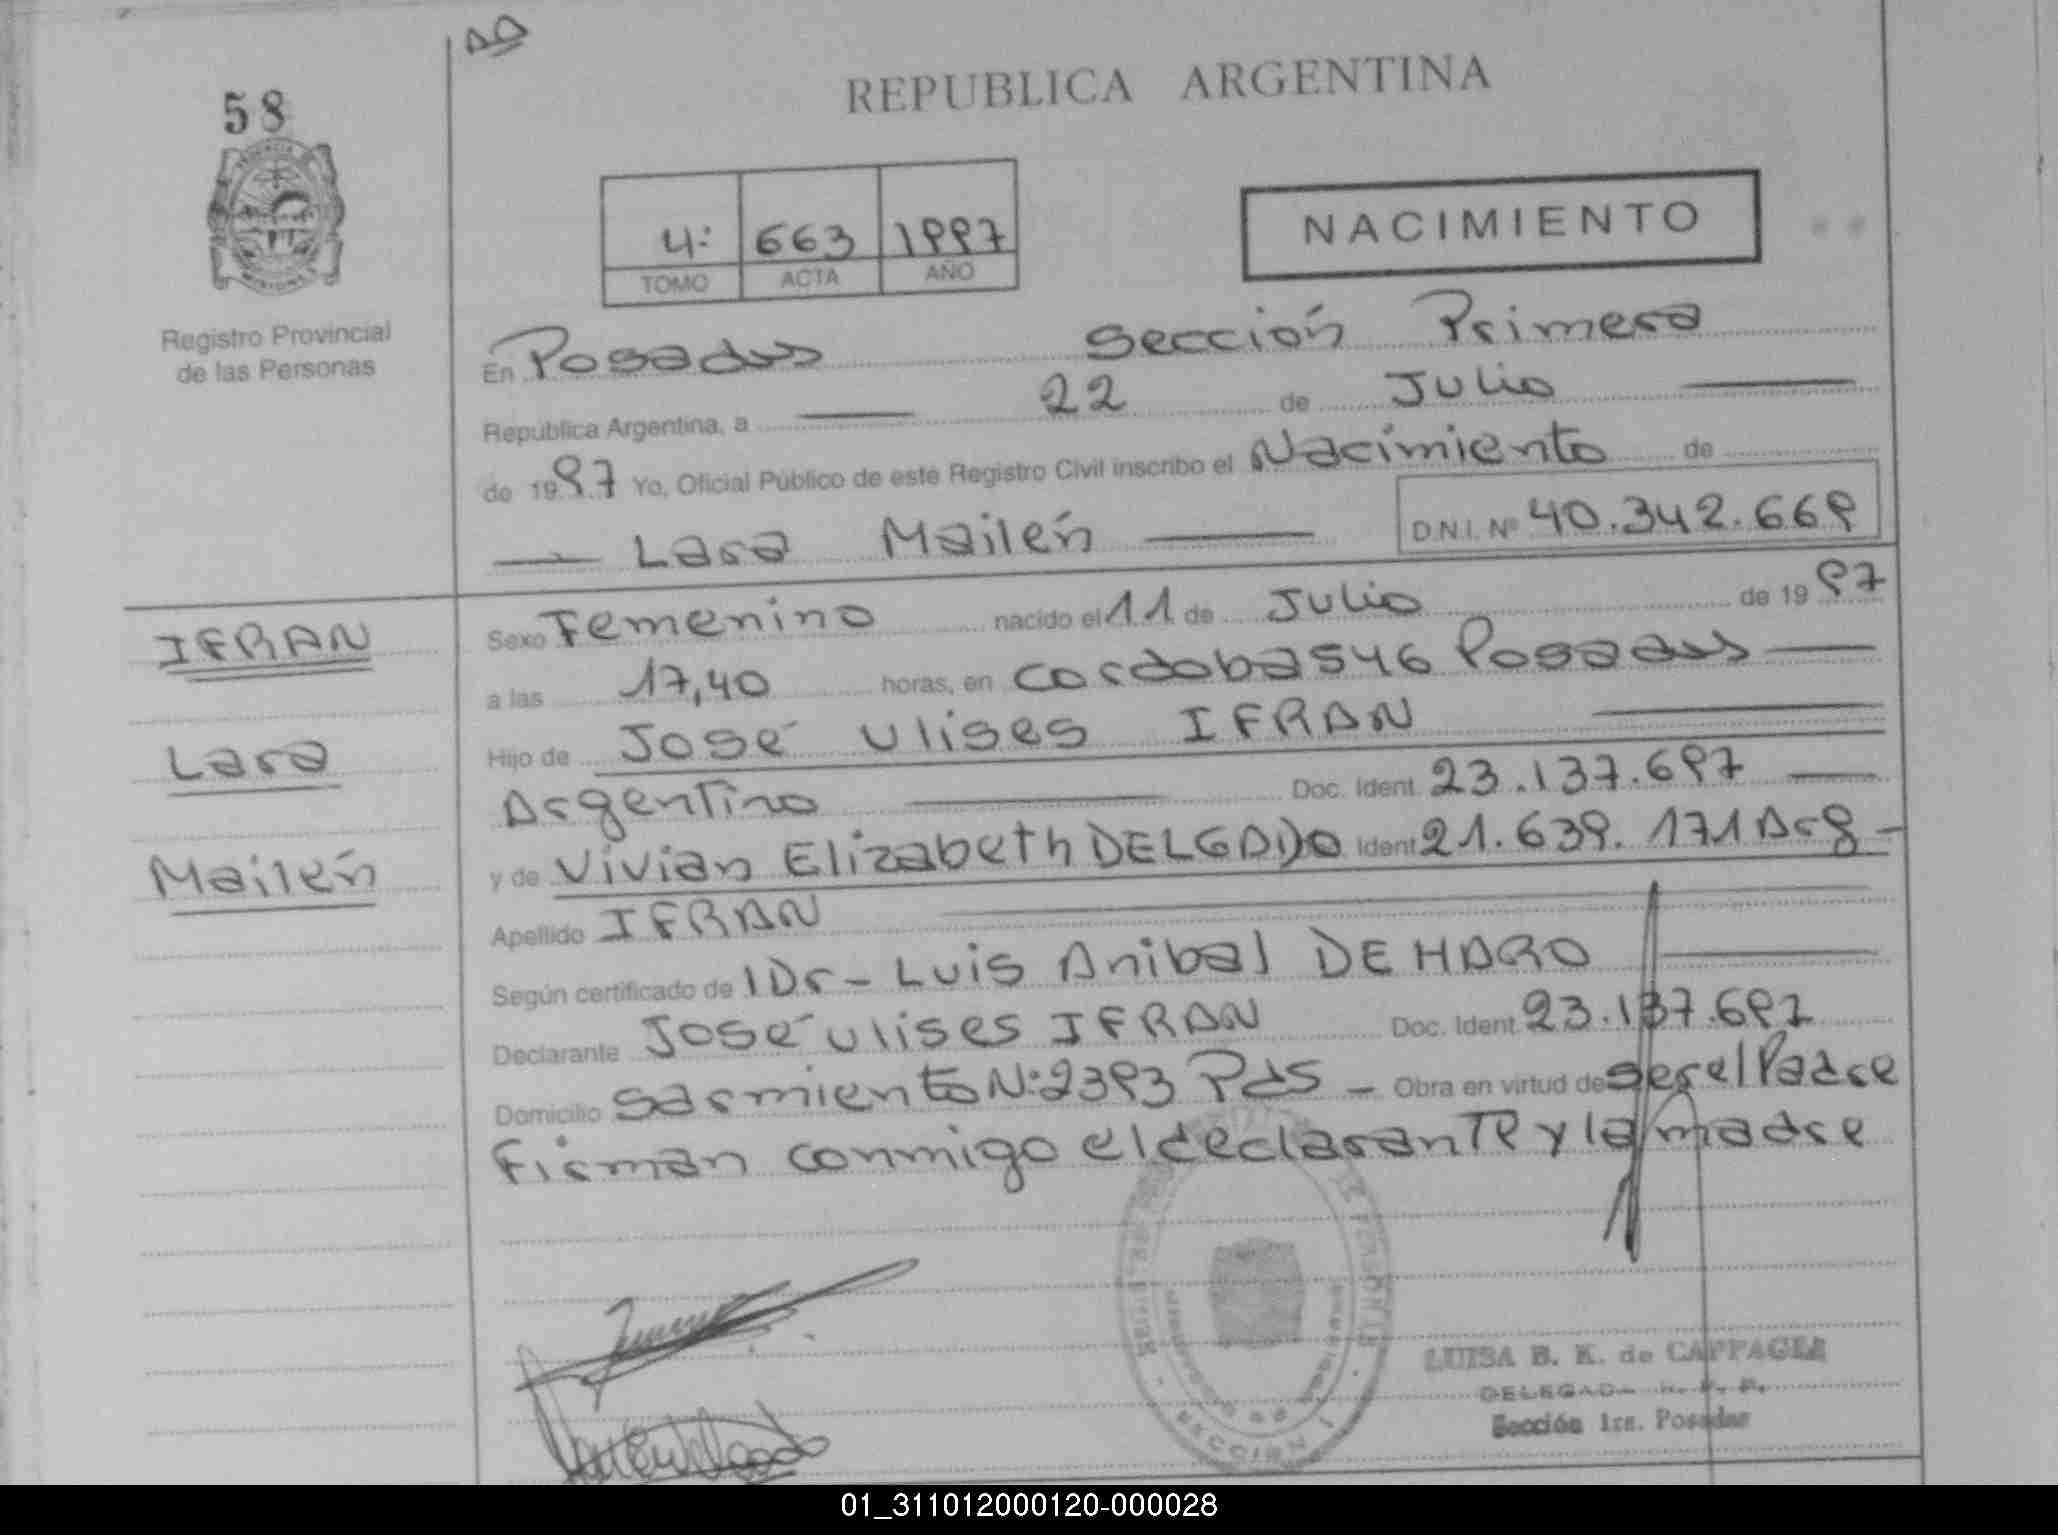 58
REPUBLICA ARGENTINA
4: 663 1997
TOMO ACTA AÑO
NACIMIENTO
Registro Provincial
de las Personas
En Posadas Sección Primera
República Argentina, a 22 de Julio
de 1997 Yo, Oficial Público de este Registro Civil inscribo el Nacimiento de
Lara Mailén D.N.I. Nº 40.342.669
IFRAN
Lara
Mailén
Sexo Femenino nacido el 11 de Julio de 1997
a las 17,40 horas, en Cordoba 546 Posadas
Hijo de José Ulises IFRAN
Argentino Doc. Ident. 23.137.697
y de Vivian Elizabeth DELGADO Ident 21.639.171 Arg
Apellido IFRAN
Según certificado de Dr- Luis Anibal DE HARO
Declarante José Ulises IFRAN Doc. Ident. 23.137.697
Domicilio Sarmiento N:2393 Pdas Obra en virtud de ser el Padre
Firman conmigo el declarante y la madre
LUISA B. K. de CAPPAGLI
DELEGADA R. P. P.
Sección 1ra. Posadas
SECCION 1
01_311012000120-000028